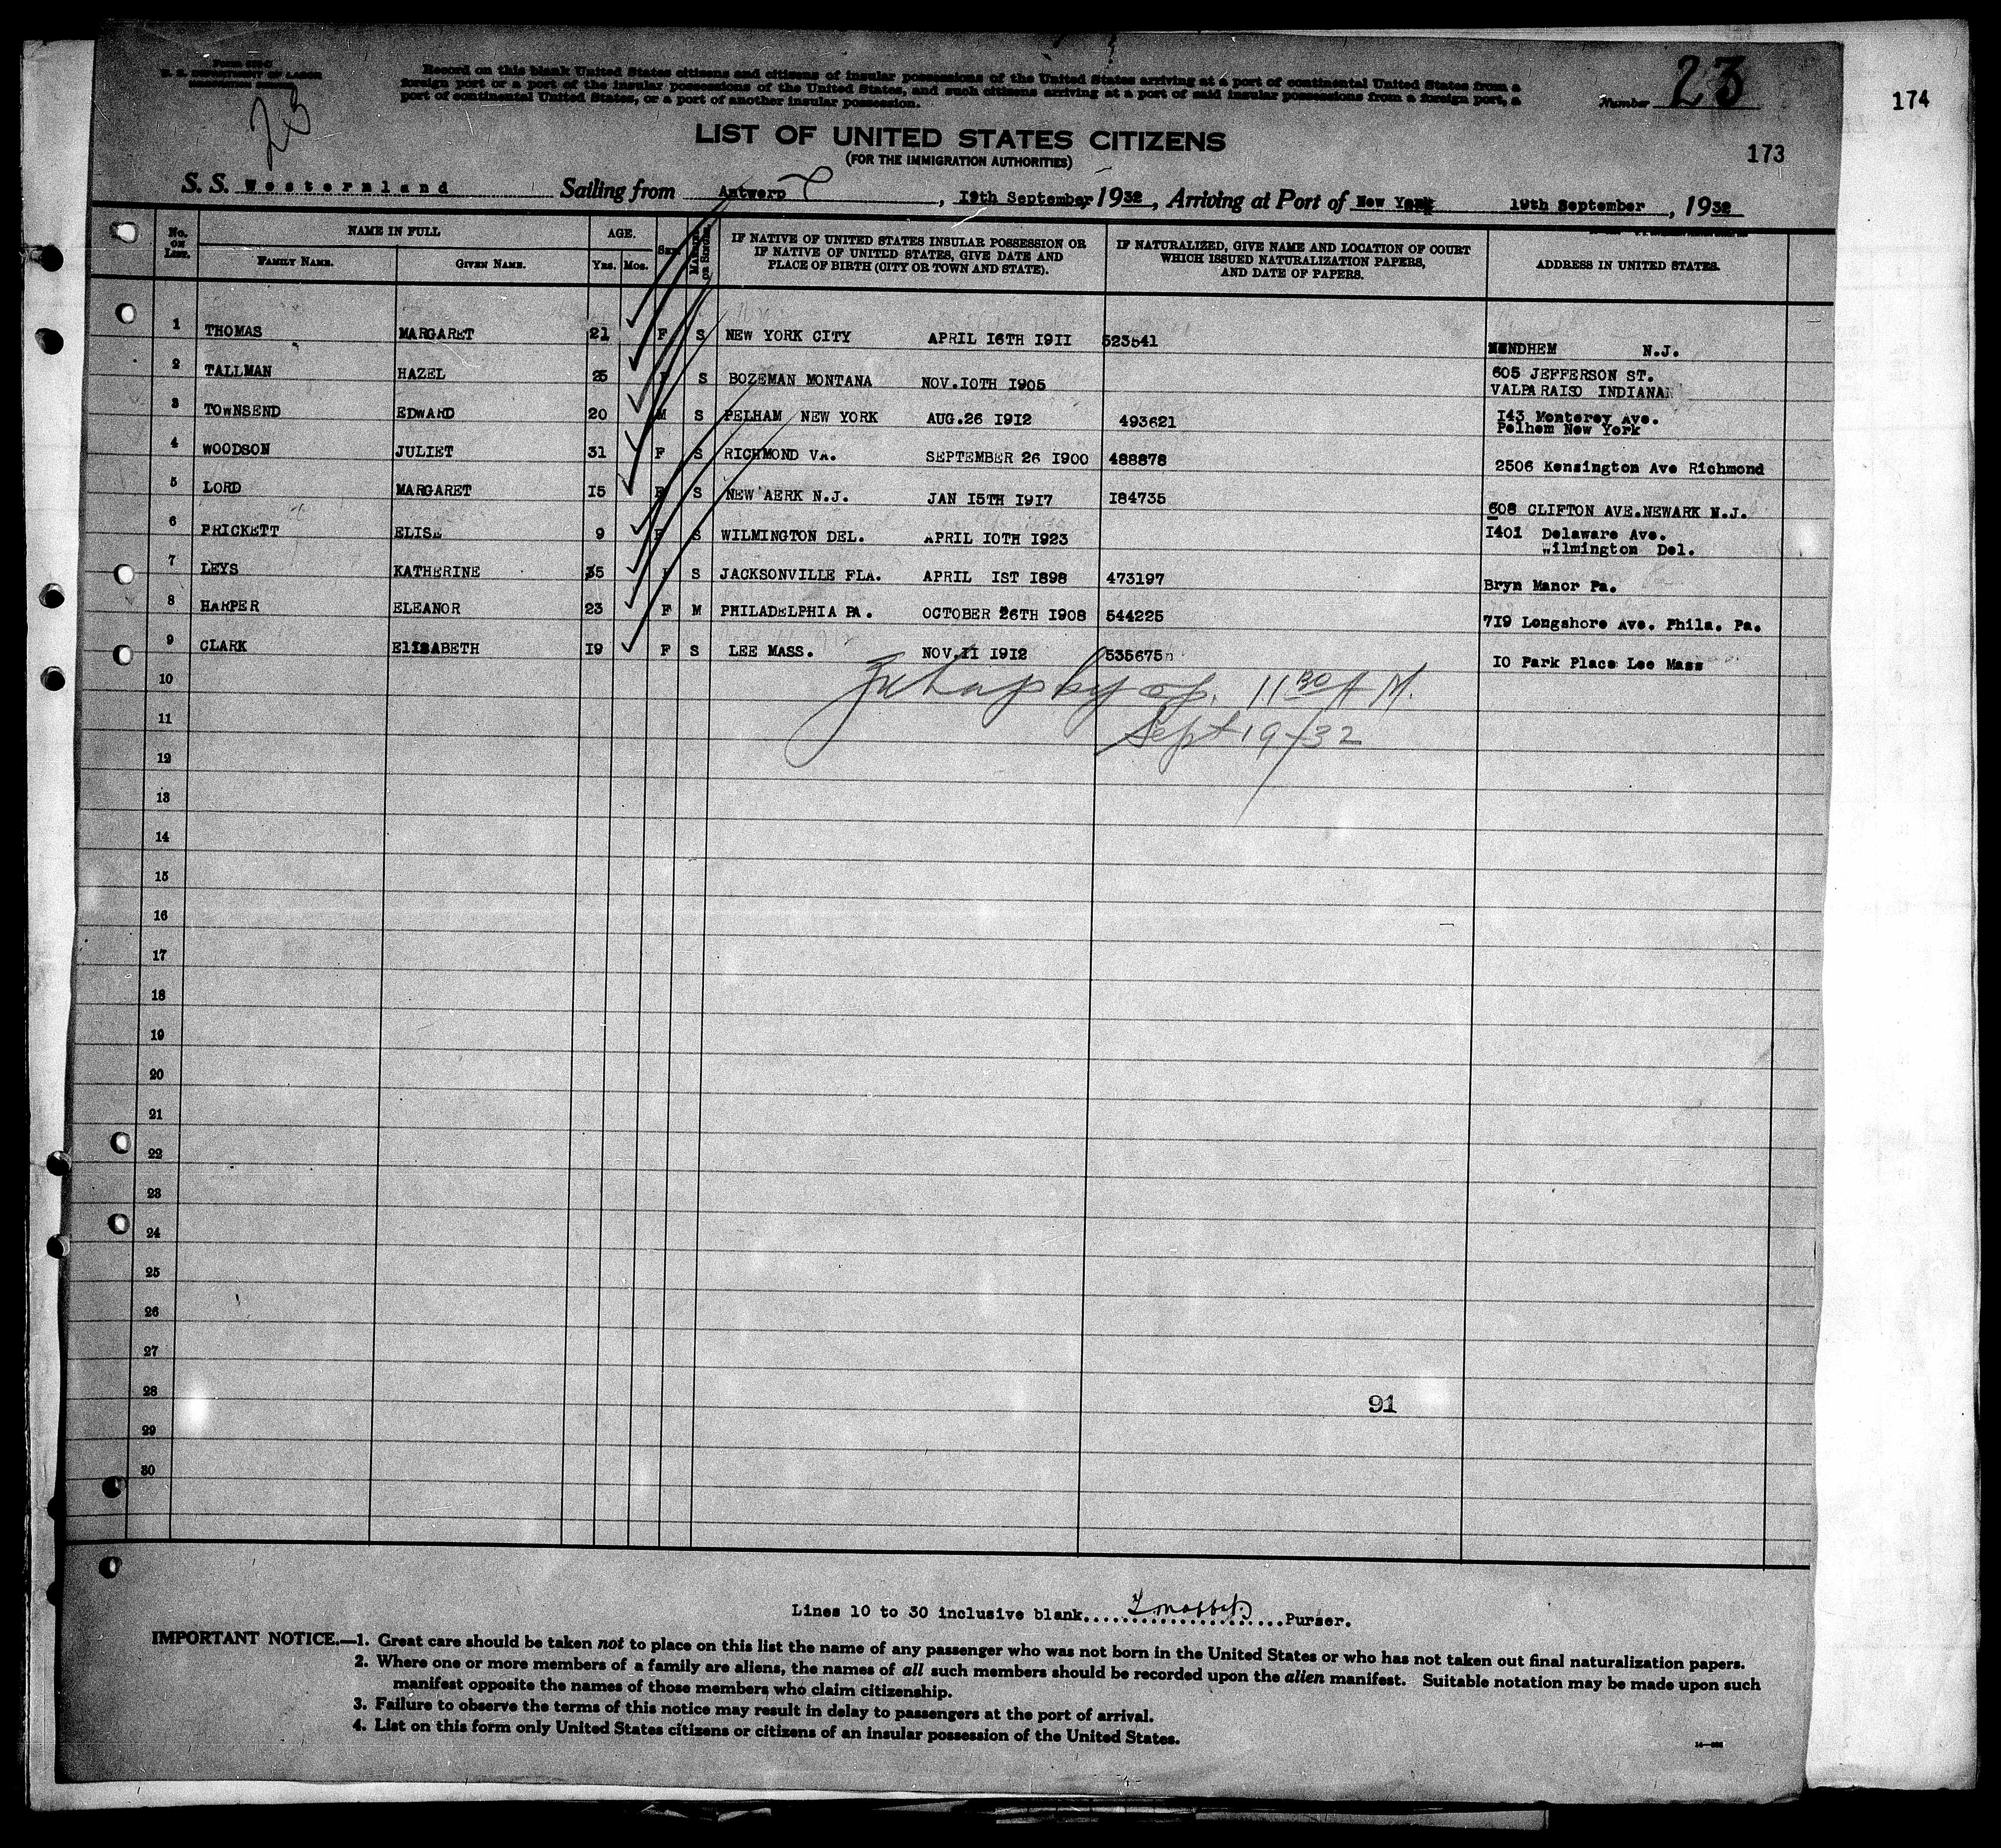 U. S. DEPARTMENT OF LABOR
Record on this blank United States citizens and citizens of insular possessions of the United States arriving at a port of continental United States from a
foreign port or a port of the insular possessions of the United States, and such citizens arriving at a port of said insular possessions from a foreign port, a
port of continental United States, or a port of another insular possession.
Number 23
174
23
LIST OF UNITED STATES CITIZENS
(FOR THE IMMIGRATION AUTHORITIES)
173
S. S. Westernland Sailing from Antwerp, 19th September, 1932, Arriving at Port of New York 19th September, 1932
No. ON LIST. NAME IN FULL AGE. SEX. MARRIED OR SINGLE. IF NATIVE OF UNITED STATES INSULAR POSSESSION OR IF NATIVE OF UNITED STATES, GIVE DATE AND PLACE OF BIRTH (CITY OR TOWN AND STATE). IF NATURALIZED, GIVE NAME AND LOCATION OF COURT WHICH ISSUED NATURALIZATION PAPERS, AND DATE OF PAPERS. ADDRESS IN UNITED STATES.
FAMILY NAME. GIVEN NAME. YRS. MOS.
1 THOMAS MARGARET 21 F S NEW YORK CITY APRIL 16TH 1911 523541 MENDHEM N.J.
2 TALLMAN HAZEL 25 F S BOZEMAN MONTANA NOV.10TH 1905 605 JEFFERSON ST.
VALPARAISO INDIANA
3 TOWNSEND EDWARD 20 M S PELHAM NEW YORK AUG.26 1912 493621 143 Monterey Ave.
Pelhem New York
4 WOODSON JULIET 31 F S RICHMOND VA. SEPTEMBER 26 1900 488878 2506 Kensington Ave Richmond
5 LORD MARGARET 15 F S NEW AERK N.J. JAN 15TH 1917 184735 608 CLIFTON AVE.NEWARK N.J.
6 PRICKETT ELISE 9 F S WILMINGTON DEL. APRIL 10TH 1923 1401 Delaware Ave.
Wilmington Del.
7 LEYS KATHERINE 35 F S JACKSONVILLE FLA. APRIL 1ST 1898 473197 Bryn Manor Pa.
8 HARPER ELEANOR 23 F M PHILADELPHIA PA. OCTOBER 26TH 1908 544225 719 Longshore Ave. Phila. Pa.
9 CLARK ELISABETH 19 F S LEE MASS. NOV.11 1912 535675 10 Park Place Lee Mass
10 11 30 A M.
11 Sept 19/32
12
13
14
15
16
17
18
19
20
21
22
23
24
25
26
27
28 91
29
30
Lines 10 to 30 inclusive blank.....................Purser.
IMPORTANT NOTICE.—1. Great care should be taken not to place on this list the name of any passenger who was not born in the United States or who has not taken out final naturalization papers.
2. Where one or more members of a family are aliens, the names of all such members should be recorded upon the alien manifest. Suitable notation may be made upon such
manifest opposite the names of those members who claim citizenship.
3. Failure to observe the terms of this notice may result in delay to passengers at the port of arrival.
4. List on this form only United States citizens or citizens of an insular possession of the United States.